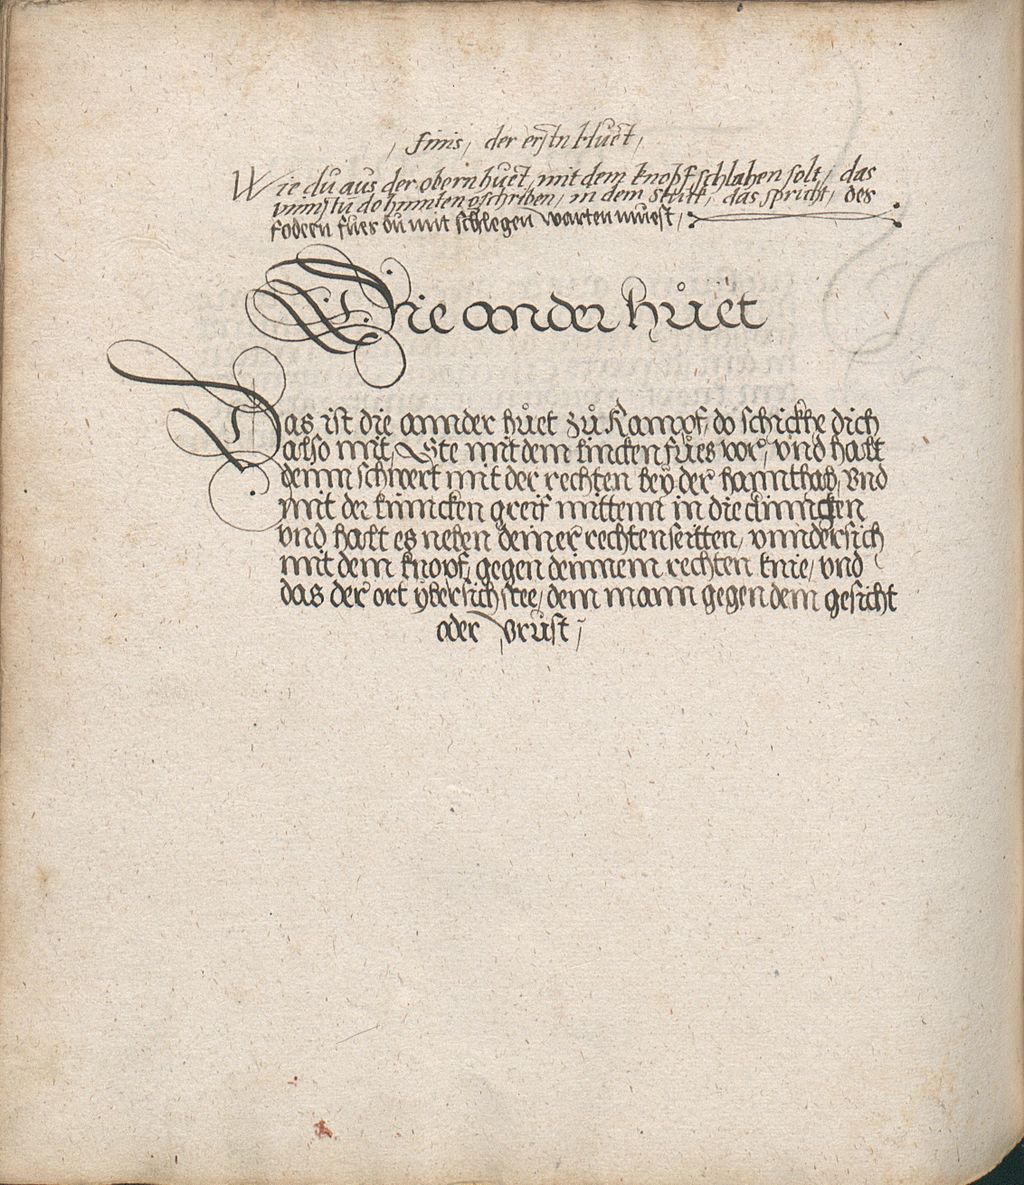 / finis, der erstn Huet,
Wie du aus der obern huet, mit dem knopf schlahen solt, das
vinnstu do hinnten gschriben, in dem stuckh, das spricht, des
fodern fues du mit schlegen warten muest,
Die ander hůet
Das ist die annder hůet zů Kampf, do schickhe dich
also mit, Ste mit dem lincken fues vor, vnd halt
deinn schwert mit der rechten bey der hannthab, vnd
mit der linncken greif mittenn in die clinncken
vnd halt es neben deiner rechten seitten, vnndersich
mit dem knopf, gegen deinnem rechten knie, vnd
das der ort vbersich stee, dem mann gegen dem gesicht
oder brůst,